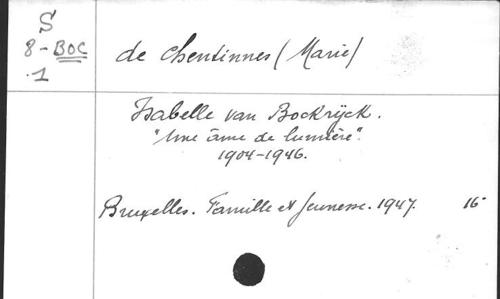 S
8-BOC
.1
de Chentinnes (Marie)
Isabelle van Bockrijck.
"Une âme de lumière".
1904-1946.
Bruxelles. Famille et Jeunesse. 1947. 16°